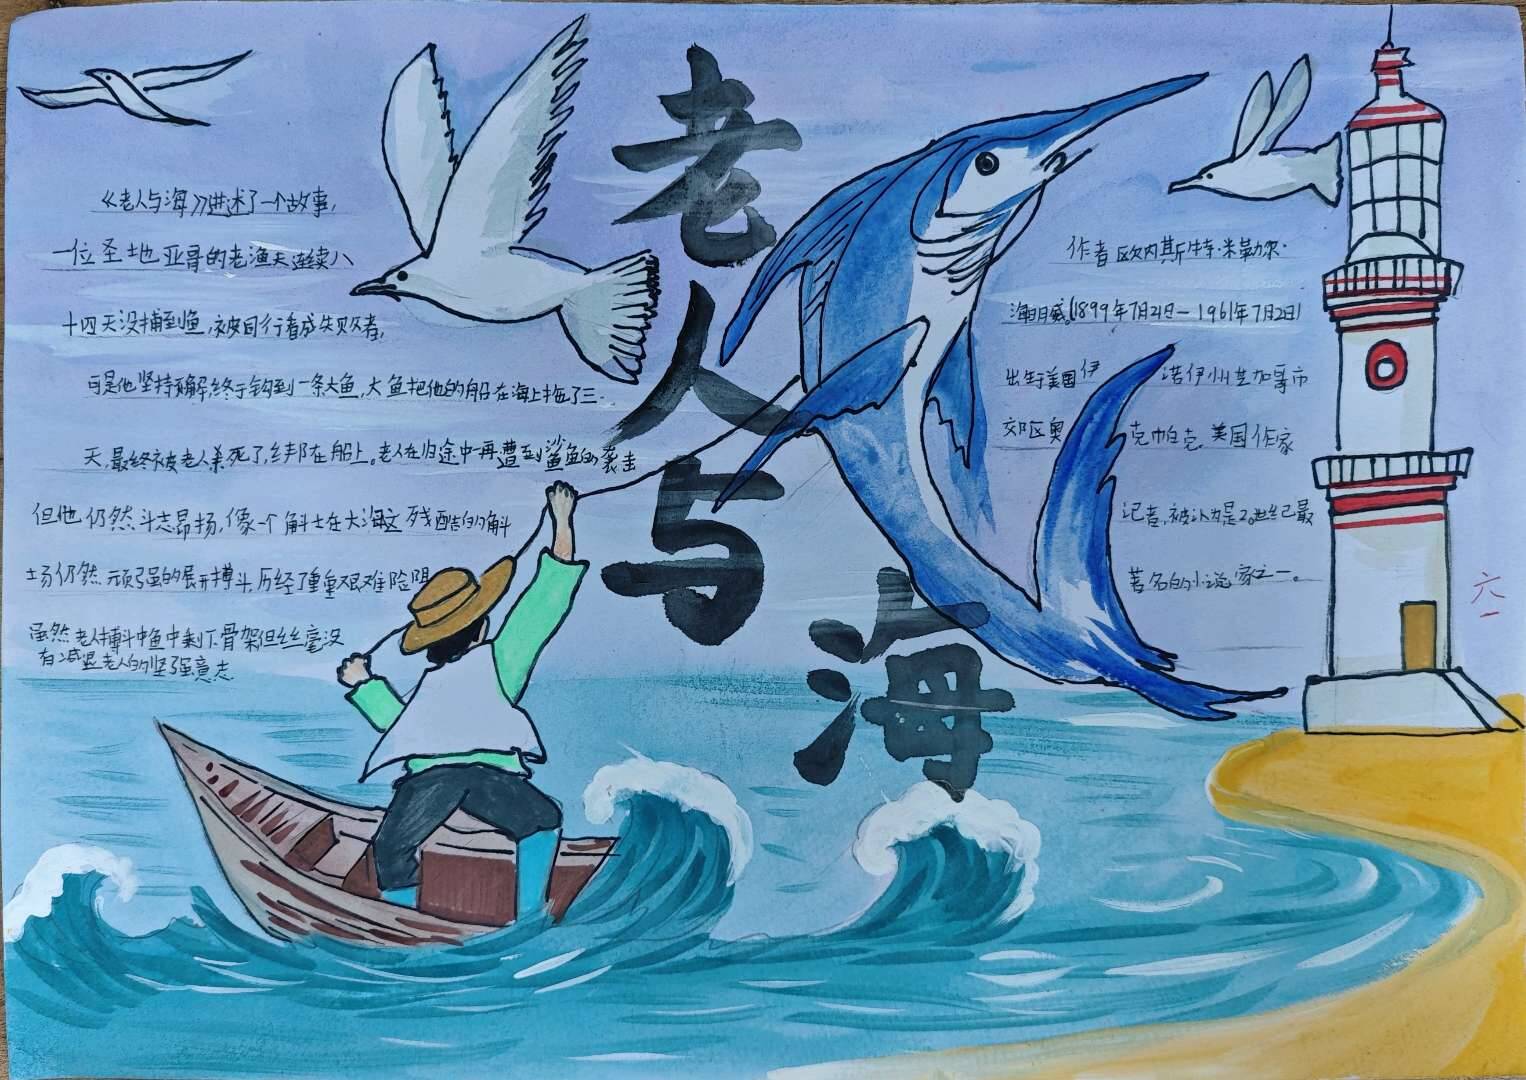 老人与海
《老人与海》讲述了一个故事,
一位圣地亚哥的老渔夫连续八
十四天没捕到鱼,被同行看成失败者,
可是他坚持不懈,终于钓到一条大鱼,大鱼把他的船在海上拖了三
天,最终被老人杀死了,绑在船上。老人在归途中再遭到鲨鱼的袭击
但他仍然斗志昂扬,像一个斗士在大海这残酷的斗
场仍然顽强的展开搏斗,历经了重重艰难险阻
虽然老人搏斗中鱼中剩下骨架但丝毫没
有减退老人的坚强意志
作者欧内斯特·米勒尔·
海明威。(1899年7月21日—1961年7月2日)
出生于美国伊 诺伊州芝加哥市
郊区奥 克帕克。美国作家
记者,被认为是20世纪最
著名的小说家之一。
六一